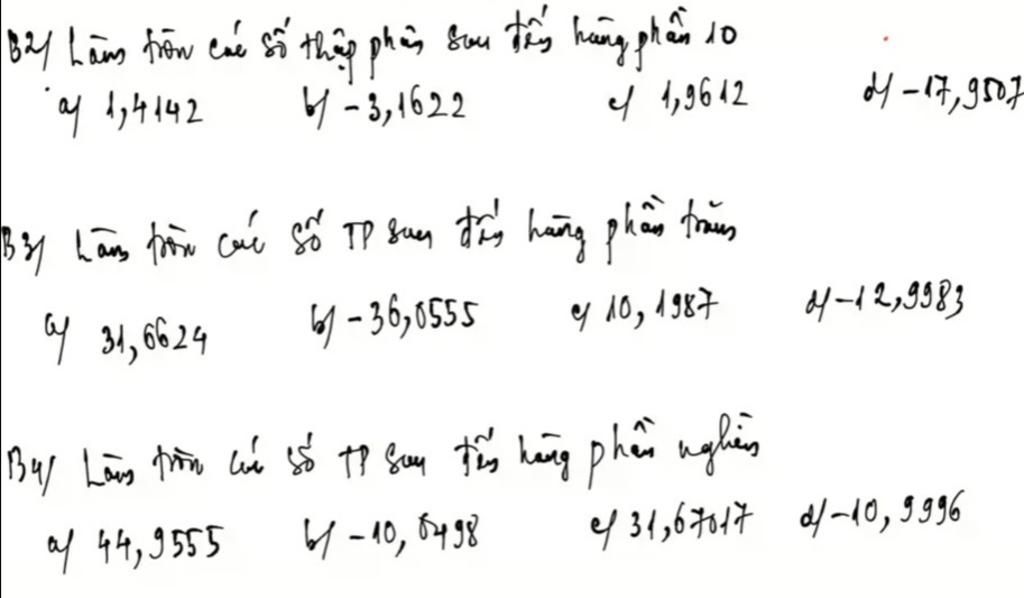 B2/ Làm tròn các số thập phân sau đến hàng phần 10
a/ 1,4142 b/ -3,1622 c/ 1,9612 d/ -17,9507
B3/ Làm tròn các số TP sau đến hàng phần trăm
a/ 31,6624 b/ -36,0555 c/ 10,1987 d/ -12,9983
B4/ Làm tròn các số TP sau đến hàng phần nghìn
a/ 44,9555 b/ -10,0498 c/ 31,67017 d/ -10,9996